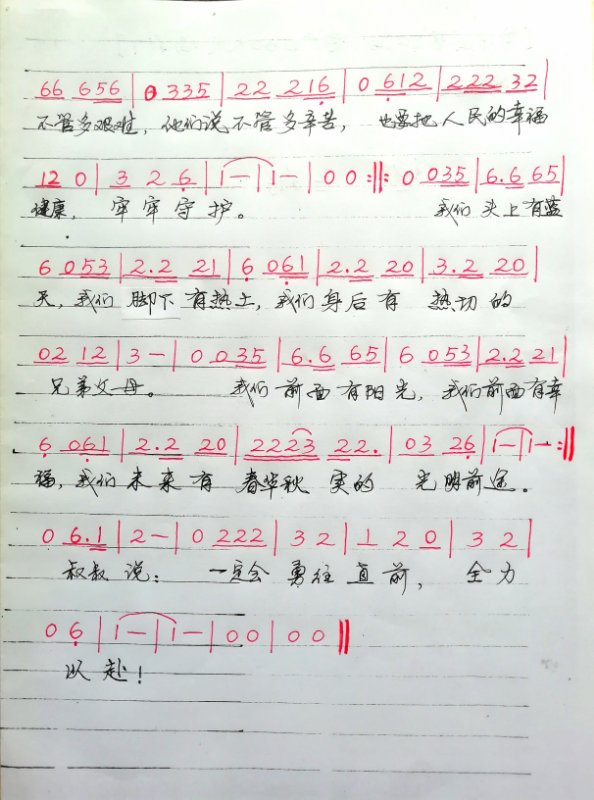 66 656 | 0 335 | 22 216 | 0 612 | 222 32 |
不管多艰难，他们说不管多辛苦，也要把人民的幸福
12 0 | 3 2 6 | 1 – | 1 – | 0 0 :||: 0 035 | 6.6 65 |
健康，牢牢守护。 我们头上有蓝
6 053 | 2.2 21 | 6 061 | 2.2 20 | 3.2 20 |
天，我们脚下有热土，我们身后有热切的
02 12 | 3 – | 0 035 | 6.6 65 | 6 053 | 2.2 21 |
兄弟父母。 我们前面有阳光，我们前面有幸
6 061 | 2.2 20 | 2223 22. | 03 26 | 1 – | 1 – :||
福，我们未来有春华秋实的光明前途。
0 6.1 | 2 – | 0 222 | 3 2 | 1 2 0 | 3 2 |
叔叔说：一定会勇往直前，全力
0 6 | 1 – | 1 – | 0 0 | 0 0 ||
以赴！